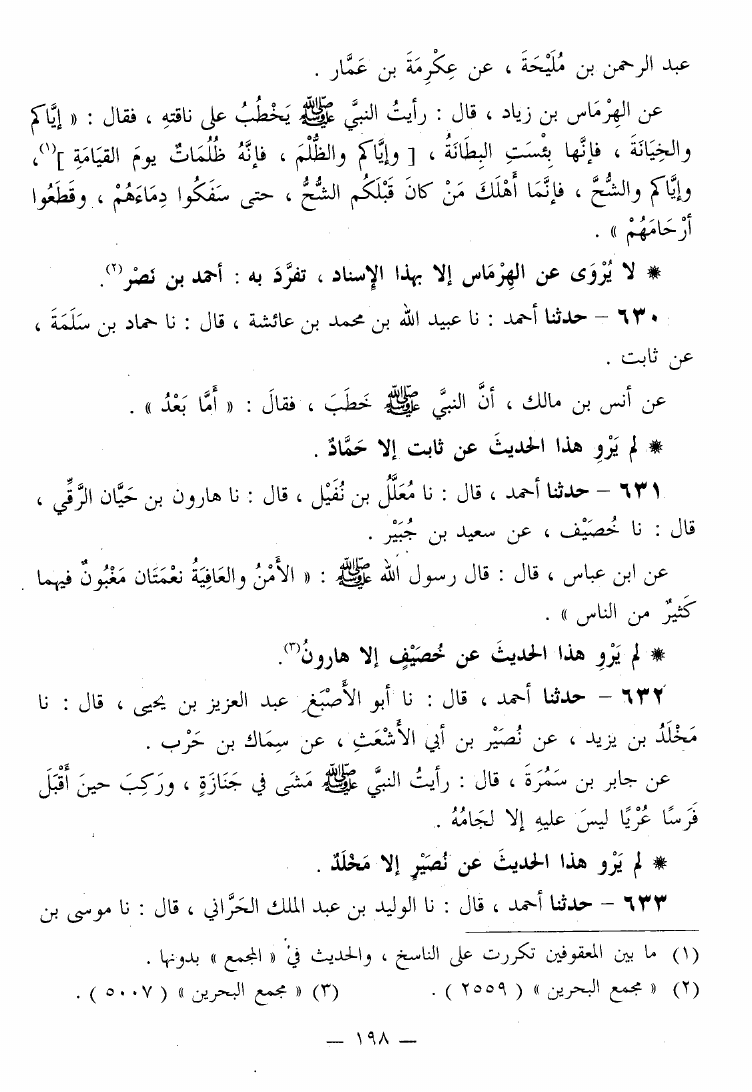 عبد الرحمن بن مُلَيْحَةَ ، عن عِكْرِمَةَ بن عَمَّار .
عن الهِرْمَاس بن زياد ، قال : رأيتُ النبيَّ ﷺ يَخْطُبُ على ناقتهِ ، فقال : « إيَّاكم
والخِيَانَةَ ، فإنَّها بِئْسَتِ البِطَانَةُ ، [ وإيَّاكم والظُّلْمَ ، فإنَّهُ ظُلُمَاتٌ يومَ القيَامَةِ ](١)،
وإيَّاكم والشُّحَّ ، فإنَّمَا أَهْلَكَ مَنْ كانَ قَبْلَكُم الشُّحُّ ، حتى سَفَكُوا دِمَاءَهُمْ ، وقَطَعُوا
أرْحَامَهُمْ » .
* لا يُرْوَى عن الهِرْمَاس إلا بهذا الإسناد ، تفرَّدَ به : أحمد بن نَصْر(٢).
٦٣٠ – حدثنا أحمد : نا عبيد الله بن محمد بن عائشة ، قال : نا حماد بن سَلَمَةَ ،
عن ثابت .
عن أنس بن مالك ، أنَّ النبيَّ ﷺ خَطَبَ ، فقالَ : « أَمَّا بَعْدُ » .
* لم يَرْوِ هذا الحديثَ عن ثابت إلا حَمَّادٌ .
٦٣١ – حدثنا أحمد ، قال : نا مُعَلَّلُ بن نُفَيْل ، قال : نا هارون بن حَيَّان الرَّقِّي ،
قال : نا خُصَيْف ، عن سعيد بن جُبَيْر .
عن ابن عباس ، قال : قال رسول الله ﷺ : « الأَمْنُ والعَافِيَةُ نعْمَتَان مَغْبُونٌ فيهما
كَثيرٌ من الناس » .
* لم يَرْوِ هذا الحديثَ عن خُصَيْفٍ إلا هارونُ(٣).
٦٣٢ – حدثنا أحمد ، قال : نا أبو الأَصْبَغِ عبد العزيز بن يحيى ، قال : نا
مَخْلَدُ بن يزيد ، عن نُصَيْر بن أبي الأَشْعَثِ ، عن سِمَاك بن حَرْب .
عن جابر بن سَمُرَةَ ، قال : رأيتُ النبيَّ ﷺ مَشَى في جَنَازَةٍ ، ورَكِبَ حينَ أَقْبَلَ
فَرَسًا عُرْيًا ليسَ عليهِ إلا لجَامُهُ .
* لم يَرْوِ هذا الحديثَ عن نُصَيْرٍ إلا مَخْلَدٌ .
٦٣٣ – حدثنا أحمد ، قال : نا الوليد بن عبد الملك الحَرَّاني ، قال : نا موسى بن
(١) ما بين المعقوفين تكررت على الناسخ ، والحديث في « المجمع » بدونها .
(٢) « مجمع البحرين » ( ٢٥٥٩ ) . (٣) « مجمع البحرين » ( ٥٠٠٧ ) .
– ١٩٨ –